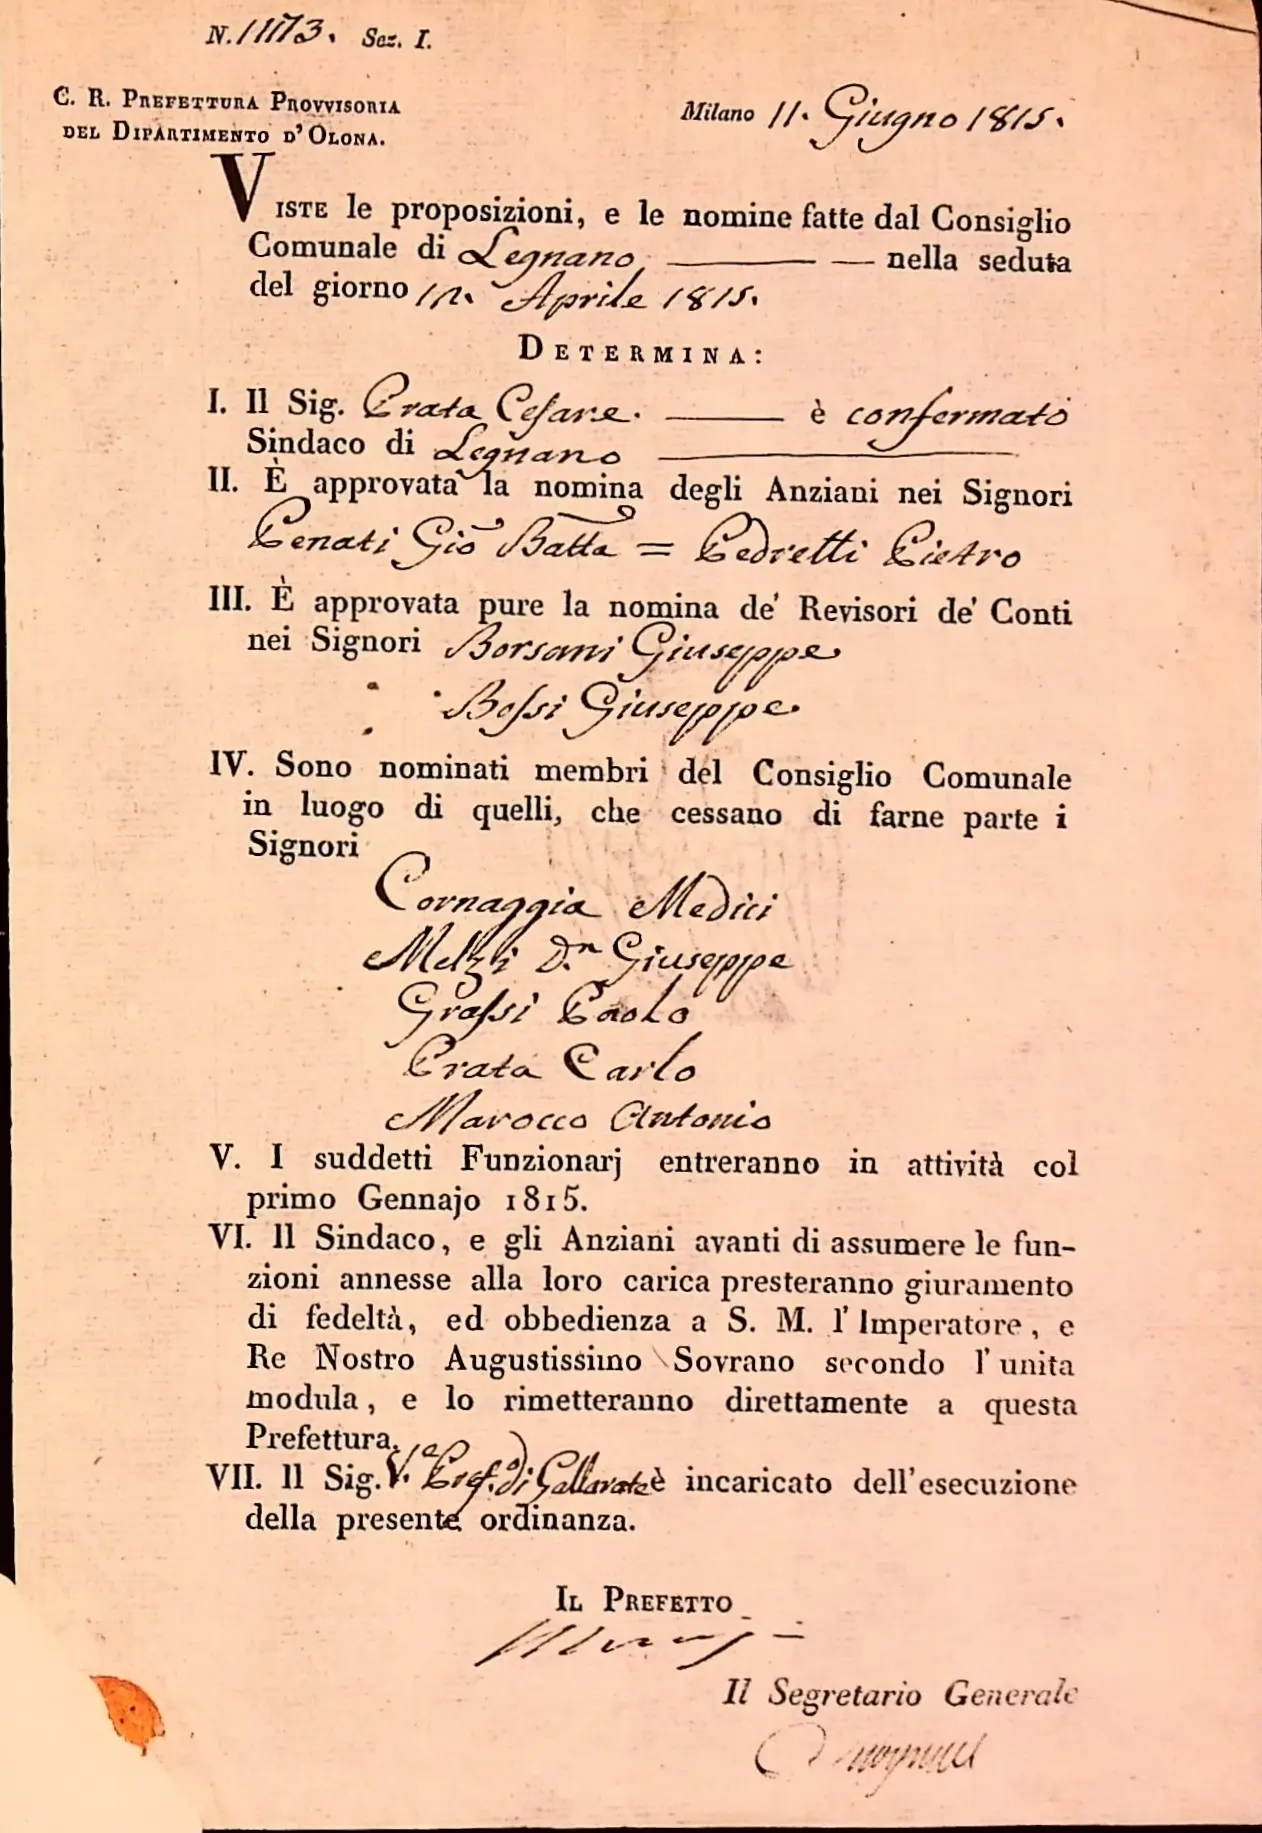 N. 11173. Sez. I.
C. R. PREFETTURA PROVVISORIA
DEL DIPARTIMENTO D' OLONA.
Milano 11. Giugno 1815.
VISTE le proposizioni, e le nomine fatte dal Consiglio
Comunale di Legnano, ——— — nella seduta
del giorno 12. Aprile 1815.
DETERMINA:
I. Il Sig. Prata Cesare. ——— è confermato
Sindaco di Legnano ———
II. È approvata la nomina degli Anziani nei Signori
Penati Gio Batta = Pedretti Pietro
III. È approvata pure la nomina de' Revisori de' Conti
nei Signori Borsani Giuseppe
Bossi Giuseppe.
IV. Sono nominati membri del Consiglio Comunale
in luogo di quelli, che cessano di farne parte i
Signori
Cornaggia Medici
Melzi D.n Giuseppe
Grassi Paolo
Prata Carlo
Marocco Antonio
V. I suddetti Funzionarj entreranno in attività col
primo Gennajo 1815.
VI. Il Sindaco, e gli Anziani avanti di assumere le fun-
zioni annesse alla loro carica presteranno giuramento
di fedeltà, ed obbedienza a S. M. l' Imperatore, e
Re Nostro Augustissimo Sovrano secondo l' unita
modula, e lo rimetteranno direttamente a questa
Prefettura.
VII. Il Sig. V. Pref. di Gallarate è incaricato dell' esecuzione
della presente ordinanza.
IL PREFETTO
Il Segretario Generale